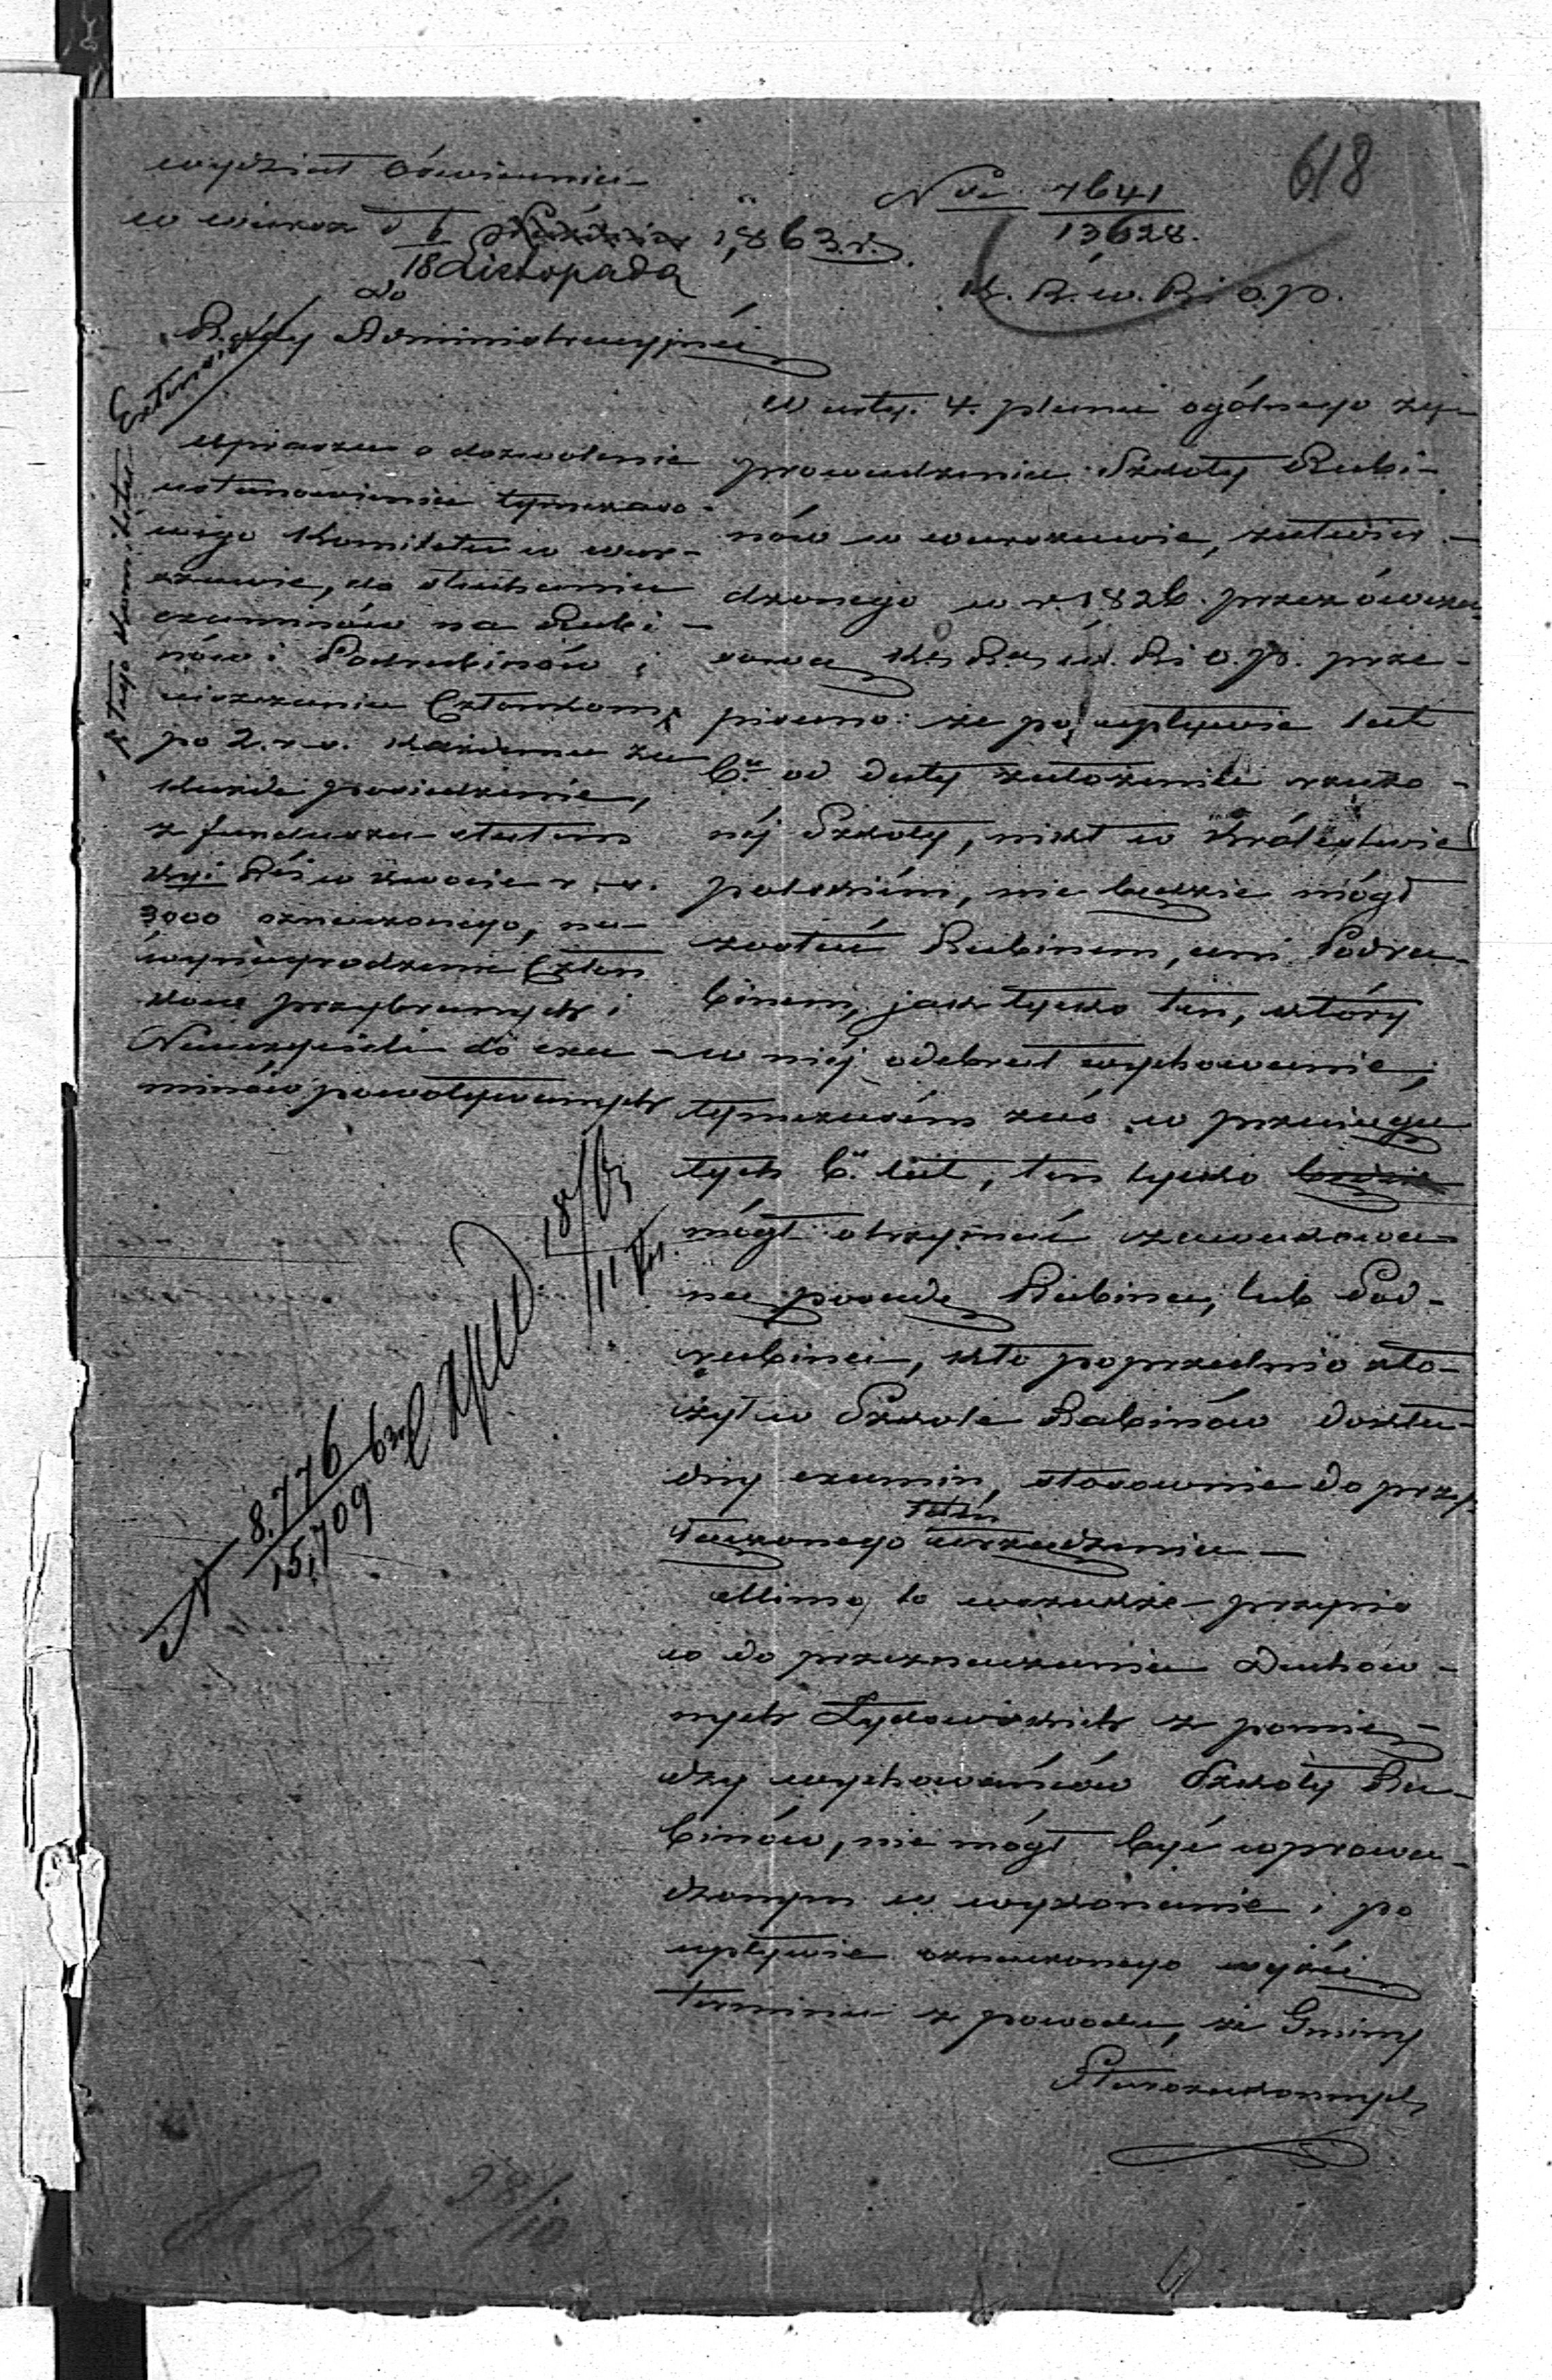 618
Wydział Oświecenia
w Warsz. d. 6 Października 1863 r.
18 Listopada
Nro 7641
13628.
K. R. W. R. i O. P.
do
Rady Administracyjnéj
uprasza o dozwolenie
ustanowienia tymczaso-
wego Komitetu w War-
szawie, do słuchania
examinów na Rabi-
nów i Podrabinów i
uiszczania Członkom
po 2. r. s. każdemu za
każde posiedzenie,
z funduszu etatem
3000 oznaczonego, na
wynagrodzenie Człon
ków przybranych i
Nauczycieli do exa-
minów powoływanych
W arty. 4. planu ogólnego za-
prowadzenia Szkoły Rabi-
nów w Warszawie, zatwier-
dzonego w r. 1826. przez ówcze
sową K. R. W. R. i O. P. prze-
pisano: że po upływie lat
6u od daty założenia rzeczo-
néj Szkoły, nikt w Królestwie
polskiém, nie będzie mógł
zostać Rabinem, ani Podra-
binem, jak tylko ten, który
w niéj odebrał wychowanie;
tymczasem zaś w przeciągu
tych 6u lat, ten tylko będzie
mógł otrzymać zawakowa-
ną posadę Rabina, lub Pod-
rabina, kto poprzednio zło-
żył w Szkole Rabinów dokła-
dny examin, stosownie do przy
łączonego urządzenia –
Mimo to wszakże przepis
co do przeznaczania Duchow-
nych Żydowskich z pomię-
dzy wychowańców Szkoły Ra-
binów, nie mógł być wprowa-
dzonym w wykonanie i po
upływie oznaczonego wyżéj
terminu z powodu, że Gminy
Starozakonnych
N 8.776
15,709
63
Exped. 18/63
11
28/10